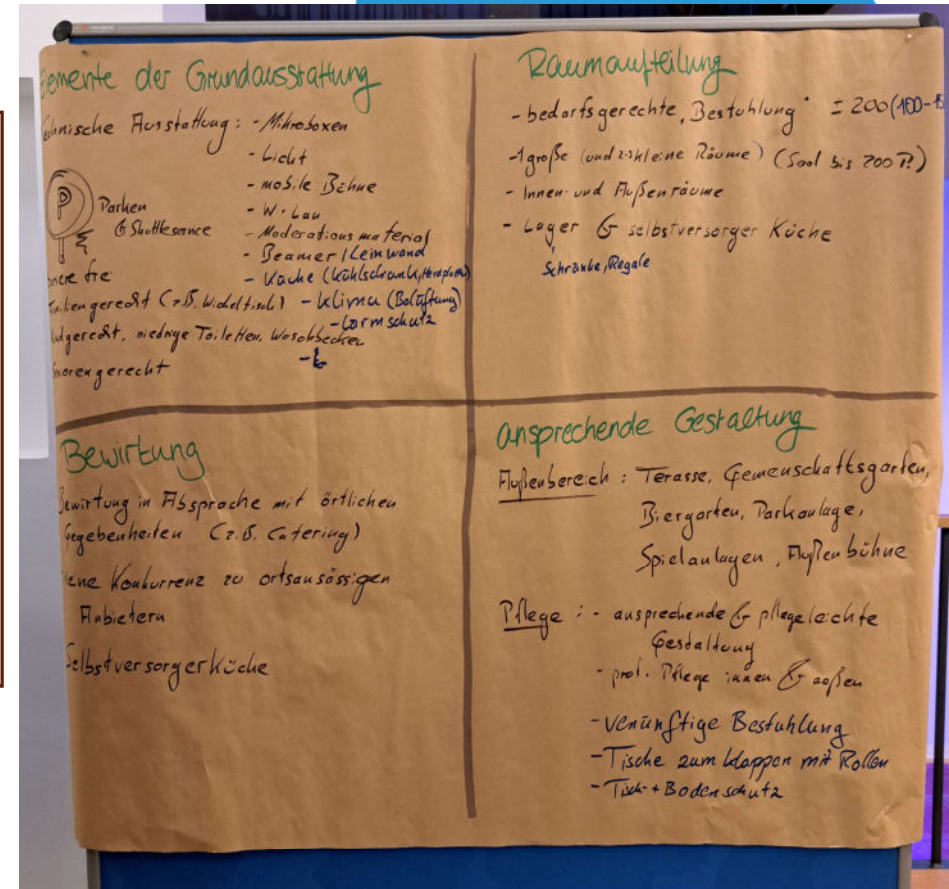 Elemente der Grundausstattung
Technische Ausstattung: - Mikroboxen
- Licht
- mobile Bühne
- W-Lan
- Moderationsmaterial
- Beamer/Leinwand
- Küche (Kühlschrank,
- Klima (Belüftung)
- Lärmschutz
P Parken
& Shuttleservice
(z.B. Wickeltisch)
niedrige Toiletten, Waschbecken
Raumaufteilung
- bedarfsgerechte "Bestuhlung" = 200(100-
- 1 große (und 2-3 kleine Räume) (Saal bis 200 P.)
- Innen- und Außenräume
- Lager & selbstversorger Küche
Schränke, Regale
Bewirtung
Bewirtung in Absprache mit örtlichen
Gegebenheiten (z.B. Catering)
Konkurrenz zu ortsansässigen
Anbietern
Selbstversorgerküche
ansprechende Gestaltung
Außenbereich: Terasse, Gemenschaftsgarten,
Biergarten, Parkanlage,
Spielanlagen, Außenbühne
Pflege: - ansprechende & pflegeleichte
Gestaltung
- prof. Pflege innen & außen
- venünftige Bestuhlung
- Tische zum klappen mit Rollen
- Tisch- + Bodenschutz